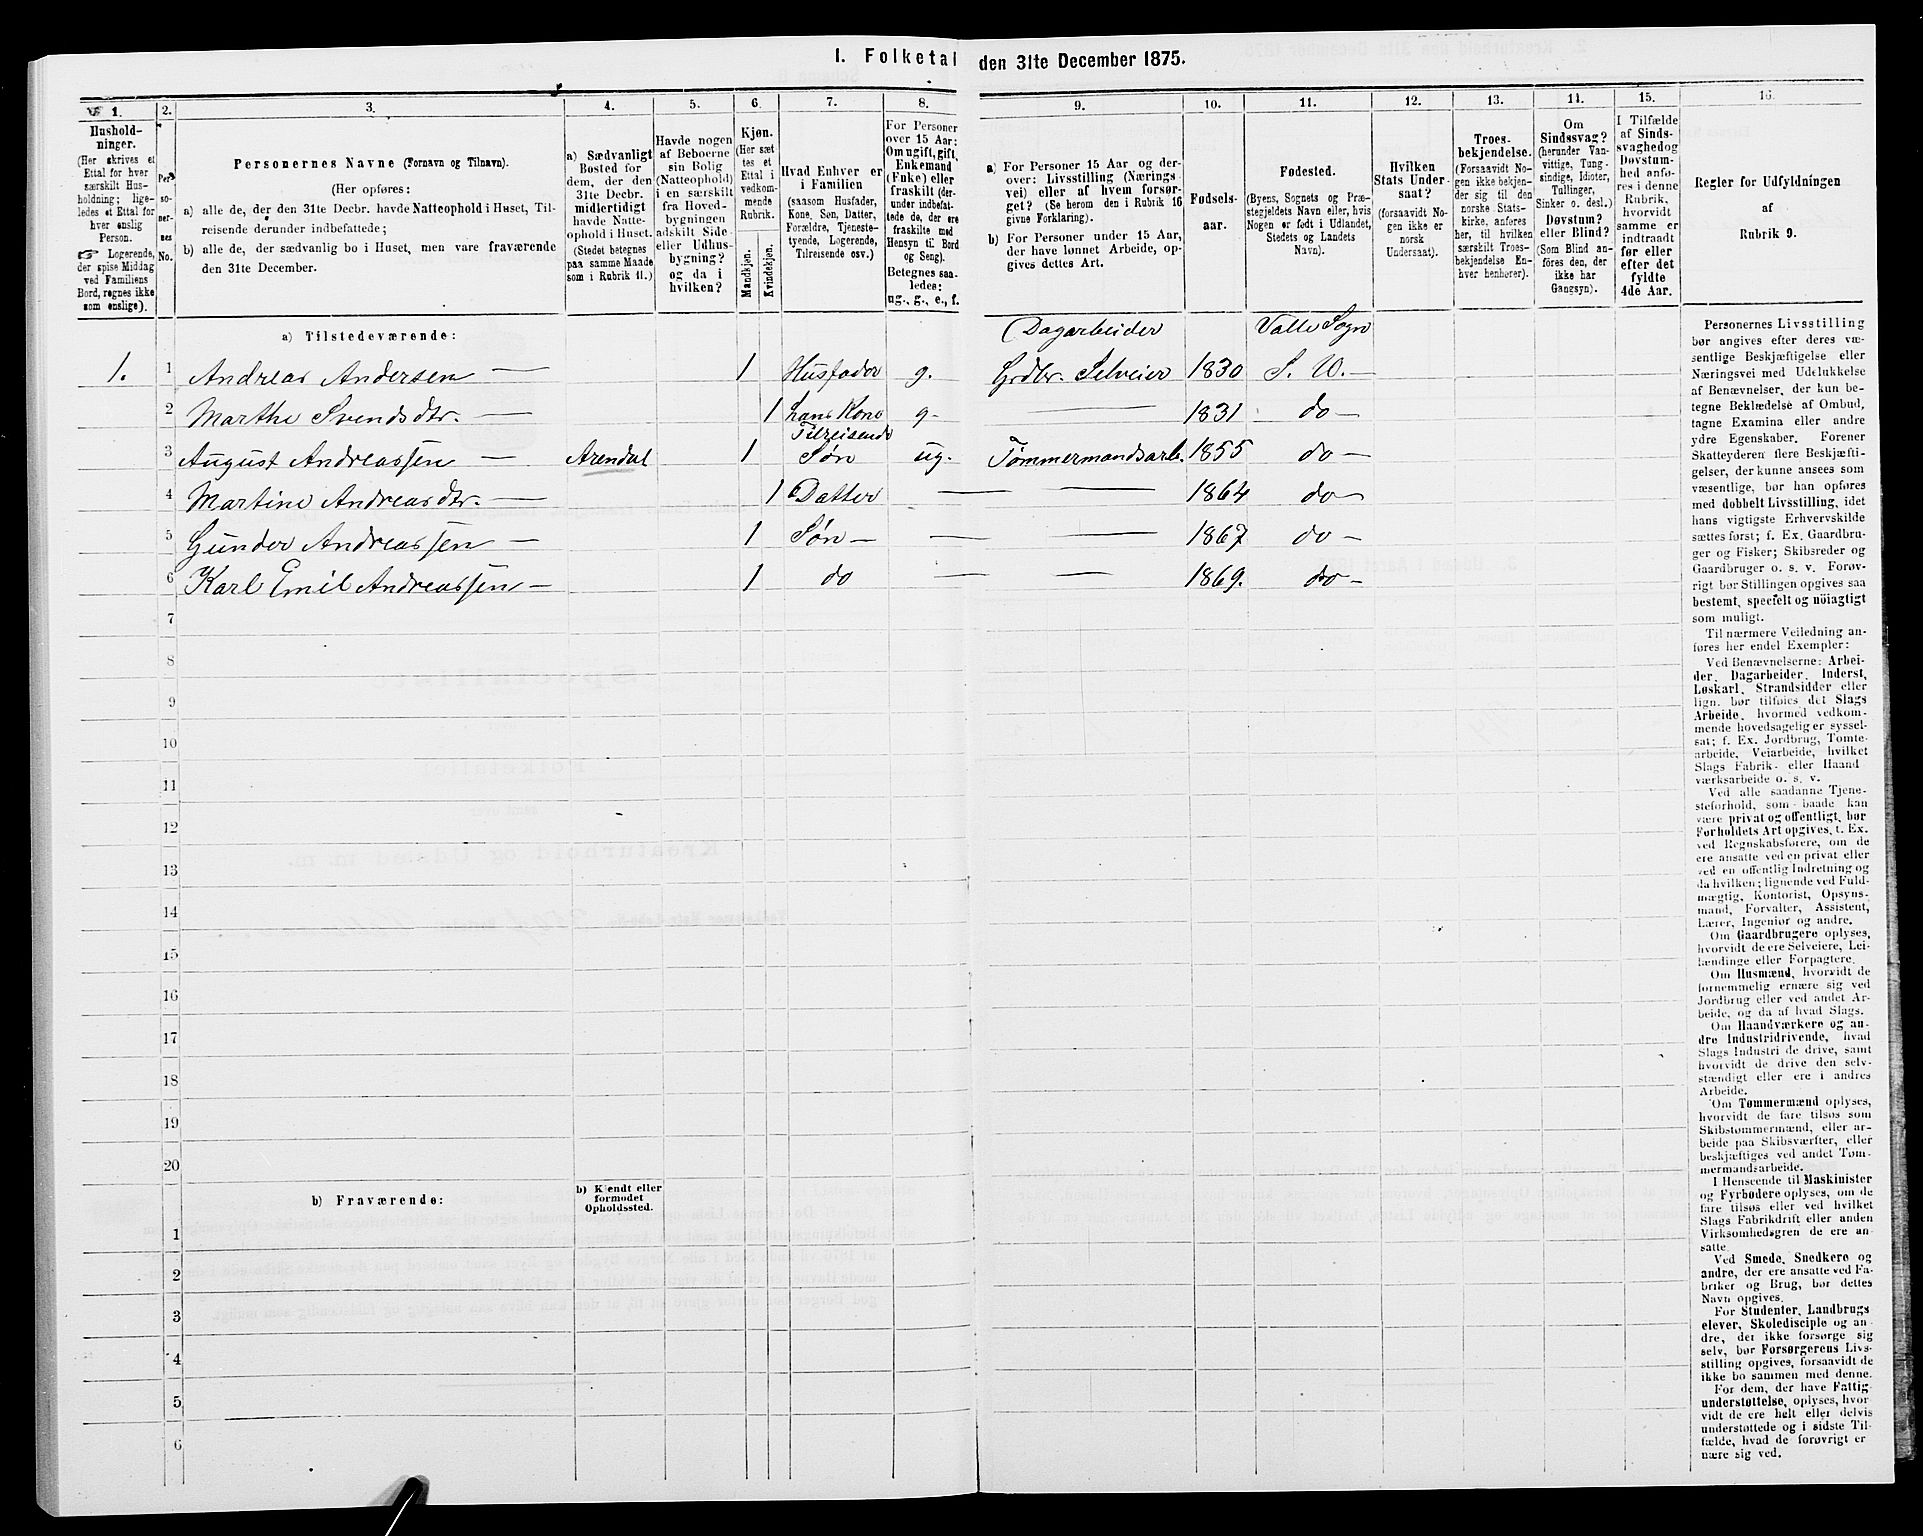 I. Folketal den 31te December 1875.
1.
2.
3.
4.
5.
6.
7.
8.
9.
10.
11.
12.
13.
14.
15.
16.
Hushold-
ninger.
(Her skrives et
Ettal for hver
særskilt Hus-
holdning; lige-
ledes et Ettal for
hver enslig
Person.
☞ Logerende,
der spise Middag
ved Familiens
Bord, regnes ikke
som enslige).
Per-
so-
ner-
nes
No.
Personernes Navne (Fornavn og Tilnavn).
(Her opføres:
a) alle de, der den 31te Decbr. havde Natteophold i Huset, Til-
reisende derunder indbefattede;
b) alle de, der sædvanlig bo i Huset, men vare fraværende
den 31te December.
a) Sædvanligt
Bosted for
dem, der den
31te Decbr.
midlertidigt
havde Natte-
ophold i Huset.
(Stedet betegnes
paa samme Maade
som i Rubrik 11.)
Havde nogen
af Beboerne
sin Bolig
(Natteophold)
i en særskilt
fra Hoved-
bygningen
adskilt Side-
eller Udhus-
bygning?
og da i
hvilken?
Kjøn.
(Her sæt-
tes et
Ettal i
vedkom-
mende
Rubrik.
Mandkjøn.
Kvindekjøn.
Hvad Enhver er
i Familien
(saasom Husfader,
Kone, Søn, Datter,
Forældre, Tjeneste-
tyende, Logerende,
Tilreisende osv.)
For Personer
over 15 Aar:
Om ugift, gift,
Enkemand
(Enke) eller
fraskilt (der-
under indbefat-
tede de, der ere
fraskilte med
Hensyn til Bord
og Seng).
Betegnes saa-
ledes:
ug., g., e., f.
a) For Personer 15 Aar og der-
over: Livsstilling (Nærings-
vei) eller af hvem forsør-
get? (Se herom den i Rubrik 16
givne Forklaring).
b) For Personer under 15 Aar,
der have lønnet Arbeide, op-
gives dettes Art.
Fødsels-
aar.
Fødested.
(Byens, Sognets og Præ-
stegjeldets Navn eller, hvis
Nogen er født i Udlandet,
Stedets og Landets
Navn).
Hvilken
Stats Under-
saat?
(forsaavidt No-
gen ikke er
norsk
Undersaat).
Troes-
bekjendelse.
(Forsaavidt No-
gen ikke bekjen-
der sig til den
norske Stats-
kirke, anføres
her, til hvilken
særskilt Troes-
bekjendelse En-
hver henhører).
Om
Sindssvag?
(herunder Van-
vittige, Tung-
sindige, Idioter,
Tullinger,
Sinker o. desl.)
Døvstum?
eller Blind?
(Som Blind an-
føres den, der
ikke har
Gangsyn).
I Tilfælde
af Sinds-
svaghed og
Døvstum-
hed anfø-
res i denne
Rubrik,
hvorvidt
samme er
indtraadt
før eller
efter det
fyldte
4de Aar.
Regler for Udfyldningen
af
Rubrik 9.
a) Tilstedeværende:
Dagarbeider Valle Sogn
1. 1 Andreas Andersen — 1 Husfader g. Grdbr. Selveier 1830 S. W. —
2 Marthe Svendsdtr. — 1 hans Kone g. — 1831 do —
Tilreisende
3 August Andreassen — Arendal 1 Søn ug. Tømmermandsarb. 1855 do —
4 Martine Andreasdtr. — 1 Datter — — 1864 do —
5 Gunder Andreassen — 1 Søn — — — 1867 do —
6 Karl Emil Andreassen — 1 do — — 1869. do —
7
8
9
10
11
12
13
14
15
16
17
18
19
20
b) Fraværende:
b) Kjendt eller
formodet
Opholdssted.
1
2
3
4
5
6
Personernes Livsstilling
bør angives efter deres væ-
sentlige Beskjæftigelse eller
Næringsvei med Udelukkelse
af Benævnelser, der kun be-
tegne Beklædelse af Ombud,
tagne Examina eller andre
ydre Egenskaber. Forener
Skatteyderen flere Beskjæfti-
gelser, der kunne ansees som
væsentlige, bør han opføres
med dobbelt Livsstilling, idet
hans vigtigste Erhvervskilde
sættes først; f. Ex. Gaardbru-
ger og Fisker; Skibsreder og
Gaardbruger o. s. v. Forøv-
rigt bør Stillingen opgives saa
bestemt, specielt og nøiagtigt
som muligt.
Til nærmere Veiledning an-
føres her endel Exempler:
Ved Benævnelserne: Arbei-
der, Dagarbeider, Inderst,
Løskarl, Strandsidder eller
lign. bør tilføies det Slags
Arbeide, hvormed vedkom-
mende hovedsagelig er syssel-
sat; f. Ex. Jordbrug, Tomte-
arbeide, Veiarbeide, hvilket
Slags Fabrik- eller Haand-
værksarbeide o. s. v.
Ved alle saadanne Tjene-
steforhold, som baade kan
være privat og offentligt, bør
Forholdets Art opgives, t. Ex.
ved Regnskabsførere, om de
ere ansatte ved en privat eller
ved en offentlig Indretning og
da hvilken; lignende ved Fuld-
mægtig, Kontorist, Opsyns-
mand, Forvalter, Assistent,
Lærer, Ingeniør og andre.
Om Gaardbrugere oplyses,
hvorvidt de ere Selveiere, Lei-
lændinge eller Forpagtere.
Om Husmænd, hvorvidt de
fornemmelig ernære sig ved
Jordbrug eller ved andet Ar-
beide, og da af hvad Slags.
Om Haandværkere og an-
dre Industridrivende, hvad
Slags Industri de drive, samt
hvorvidt de drive den selv-
stændigt eller ere i andres
Arbeide.
Om Tømmermænd oplyses,
hvorvidt de fare tilsøs som
Skibstømmermænd, eller ar-
beide paa Skibsværfter, eller
beskjæftiges ved andet Tøm-
mermandsarbeide.
I Henseende til Maskinister
og Fyrbødere oplyses, om de
fare tilsøs eller ved hvilket
Slags Fabrikdrift eller anden
Virksomhedsgren de ere an-
satte.
Ved Smede, Snedkere og
andre, der ere ansatte ved Fa-
briker og Brug, bør dettes
Navn opgives.
For Studenter, Landbrugs-
elever, Skoledisciple og an-
dre, der ikke forsørge sig
selv, bør Forsørgerens Livs-
stilling opgives, forsaavidt de
ikke bo sammen med denne.
For dem, der have Fattig-
understøttelse, oplyses, hvor-
vidt de ere helt eller delvis
understøttede og i sidste Til-
fælde, hvad de forøvrigt er-
nære sig ved.